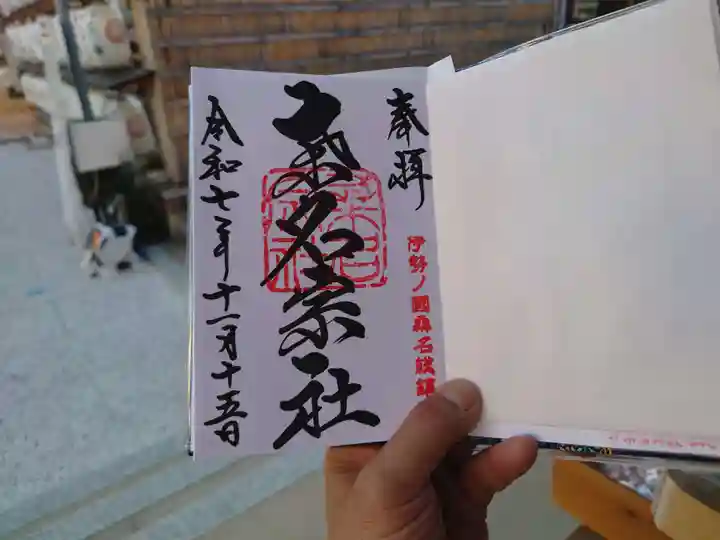 奉拝
伊勢ノ國桑名総鎮
桑名宗社
令和七年十一月十五日